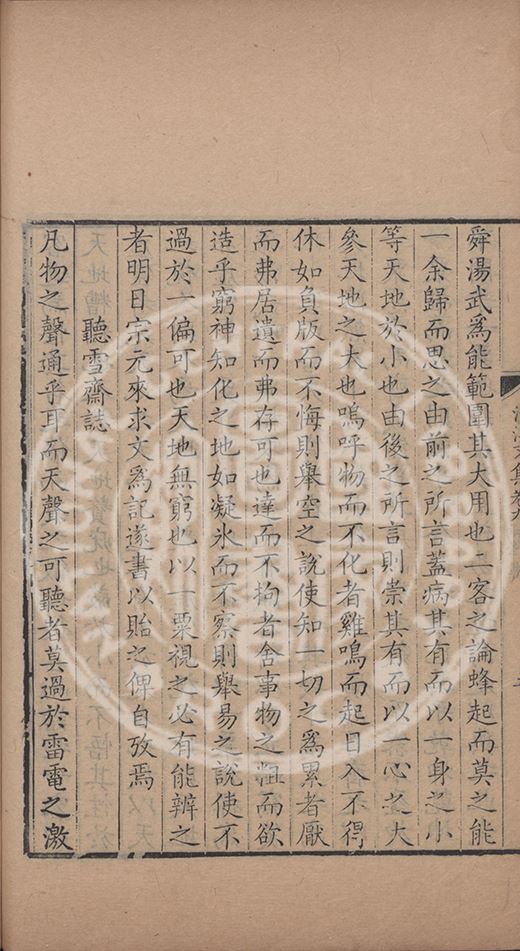 舜湯武爲能範圍其大用也二客之論蜂起而莫之能
一余歸而思之由前之所言蓋病其有而以一身之小
等天地於小也由後之所言則崇其有而以一心之大
參天地之大也嗚呼物而不化者雞鳴而起日入不得
休如負版而不悔則舉空之說使知一切之爲累者厭
而弗居遺而弗存可也達而不拘者舍事物之粗而欲
造乎窮神知化之地如凝氷而不察則舉易之說使不
過於一偏可也天地無窮也以一粟視之必有能辨之
者明日宗元來求文爲記遂書以貽之俾自攷焉
聽雪齋誌
凡物之聲通乎耳而天聲之可聽者莫過於雷電之激